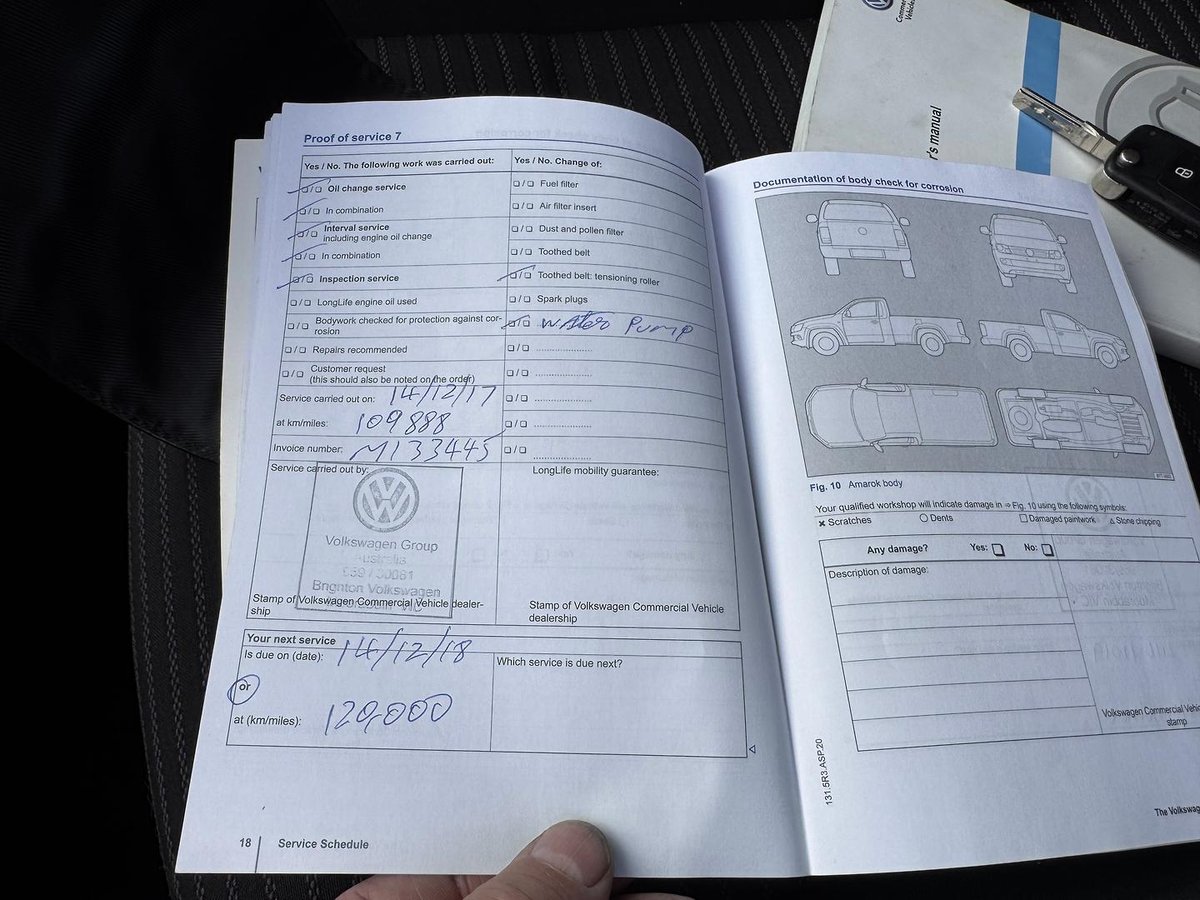 Commercial
Vehicles
's manual
Proof of service 7
Yes / No. The following work was carried out:
Oil change service
In combination
Interval service
including engine oil change
In combination
Inspection service
LongLife engine oil used
Bodywork checked for protection against cor-
rosion
Repairs recommended
Customer request
(this should also be noted on the order)
Service carried out on: 14/12/17
at km/miles: 109888
Invoice number: M133445
Service carried out by:
Volkswagen Group
Australia
Brighton Volkswagen
Stamp of Volkswagen Commercial Vehicle dealer-
ship
Yes / No. Change of:
Fuel filter
Air filter insert
Dust and pollen filter
Toothed belt
Toothed belt: tensioning roller
Spark plugs
Water Pump
LongLife mobility guarantee:
Stamp of Volkswagen Commercial Vehicle
dealership
Your next service
Is due on (date): 14/12/18
or
at (km/miles): 120,000
Which service is due next?
18 Service Schedule
Documentation of body check for corrosion
Fig. 10 Amarok body
Your qualified workshop will indicate damage in ⇒ Fig. 10 using the following symbols:
Scratches Dents Damaged paintwork Stone chipping
Any damage? Yes: No:
Description of damage:
Volkswagen Commercial Vehicle
stamp
131.5R3.ASP.20
The Volkswag